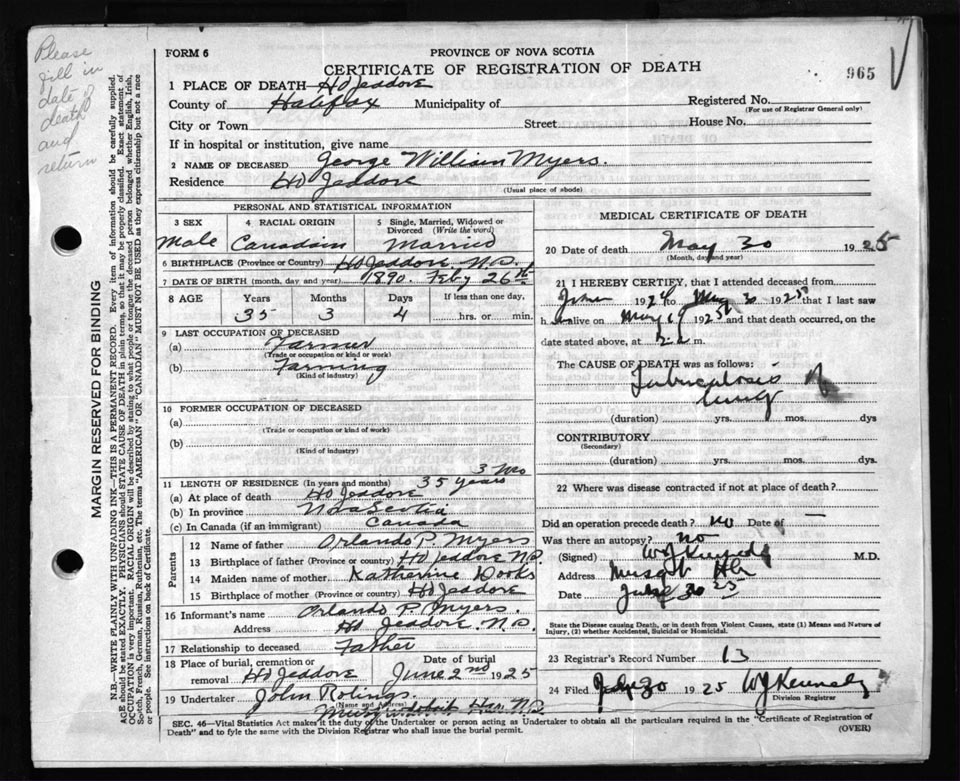 Please
fill in
date of
death
and
return
MARGIN RESERVED FOR BINDING
N.B.—WRITE PLAINLY WITH UNFADING INK—THIS IS A PERMANENT RECORD. Every item of information should be carefully supplied.
AGE should be stated EXACTLY. PHYSICIANS should STATE CAUSE OF DEATH in plain terms, so that it may be properly classified. Exact statement of
OCCUPATION is very important. RACIAL ORIGIN will be described by stating to what people or tongue the deceased person belonged, whether English, Irish,
Scotch, French, German, Russian, Ruthenian, etc. The terms "AMERICAN" OR "CANADIAN" MUST NOT BE USED as they express citizenship but not a race
or people. See instructions on back of Certificate.
FORM 6
PROVINCE OF NOVA SCOTIA
CERTIFICATE OF REGISTRATION OF DEATH
965
1 PLACE OF DEATH Hd Jeddore
County of Halifax Municipality of Registered No.
(For use of Registrar General only)
City or Town Street House No.
If in hospital or institution, give name
2 NAME OF DECEASED George William Myers.
Residence Hd Jeddore
(Usual place of abode)
PERSONAL AND STATISTICAL INFORMATION
3 SEX Male
4 RACIAL ORIGIN Canadian
5 Single, Married, Widowed or Divorced (Write the word) Married
6 BIRTHPLACE (Province or Country) Hd Jeddore N.S.
7 DATE OF BIRTH (month, day, and year) 1890. Feby 26th
8 AGE Years Months Days If less than one day,
35 3 4 hrs. or min.
9 LAST OCCUPATION OF DECEASED
(a) Farmer
(Trade or occupation or kind or work)
(b) Farming
(Kind of industry)
10 FORMER OCCUPATION OF DECEASED
(a)
(Trade or occupation or kind or work)
(b)
(Kind of industry)
3 Mo
11 LENGTH OF RESIDENCE (In years and months) 35 years
(a) At place of death Hd Jeddore
(b) In province Nova Scotia
(c) In Canada (if an immigrant) Canada
Parents
12 Name of father Orlando P. Myers
13 Birthplace of father (Province or country) Hd Jeddore N.S.
14 Maiden name of mother Katherine Hooks
15 Birthplace of mother (Province or country) Hd Jeddore
16 Informant's name Orlando P. Myers.
Address Hd Jeddore. N.S.
17 Relationship to deceased Father
18 Place of burial, cremation or removal Hd Jeddore
Date of burial June 2nd 1925
19 Undertaker John Rolings.
(Name and Address)
Musquodoboit Har. N.S.
MEDICAL CERTIFICATE OF DEATH
20 Date of death May 30 1925
(Month, day and year)
21 I HEREBY CERTIFY, that I attended deceased from
192 to May 30 1925 that I last saw
h alive on May 1925 and that death occurred, on the
date stated above, at m.
The CAUSE OF DEATH was as follows:
Tuberculosis of
lung
(duration) yrs. mos. dys
CONTRIBUTORY
(Secondary)
(duration) yrs. mos. dys.
22 Where was disease contracted if not at place of death?
Did an operation precede death? no Date of —
Was there an autopsy? no
(Signed) W J Kennedy M.D.
Address Musq b Hbr
Date 30 25
State the Disease causing Death, or in death from Violent Causes, state (1) Means and Nature of
Injury, (2) whether Accidental, Suicidal or Homicidal.
23 Registrar's Record Number 13
24 Filed 30 1925 W J Kennedy
Division Registrar
SEC. 46—Vital Statistics Act makes it the duty of the Undertaker or person acting as Undertaker to obtain all the particulars required in the "Certificate of Registration of
Death" and to fyle the same with the Division Registrar who shall issue the burial permit.
(OVER)